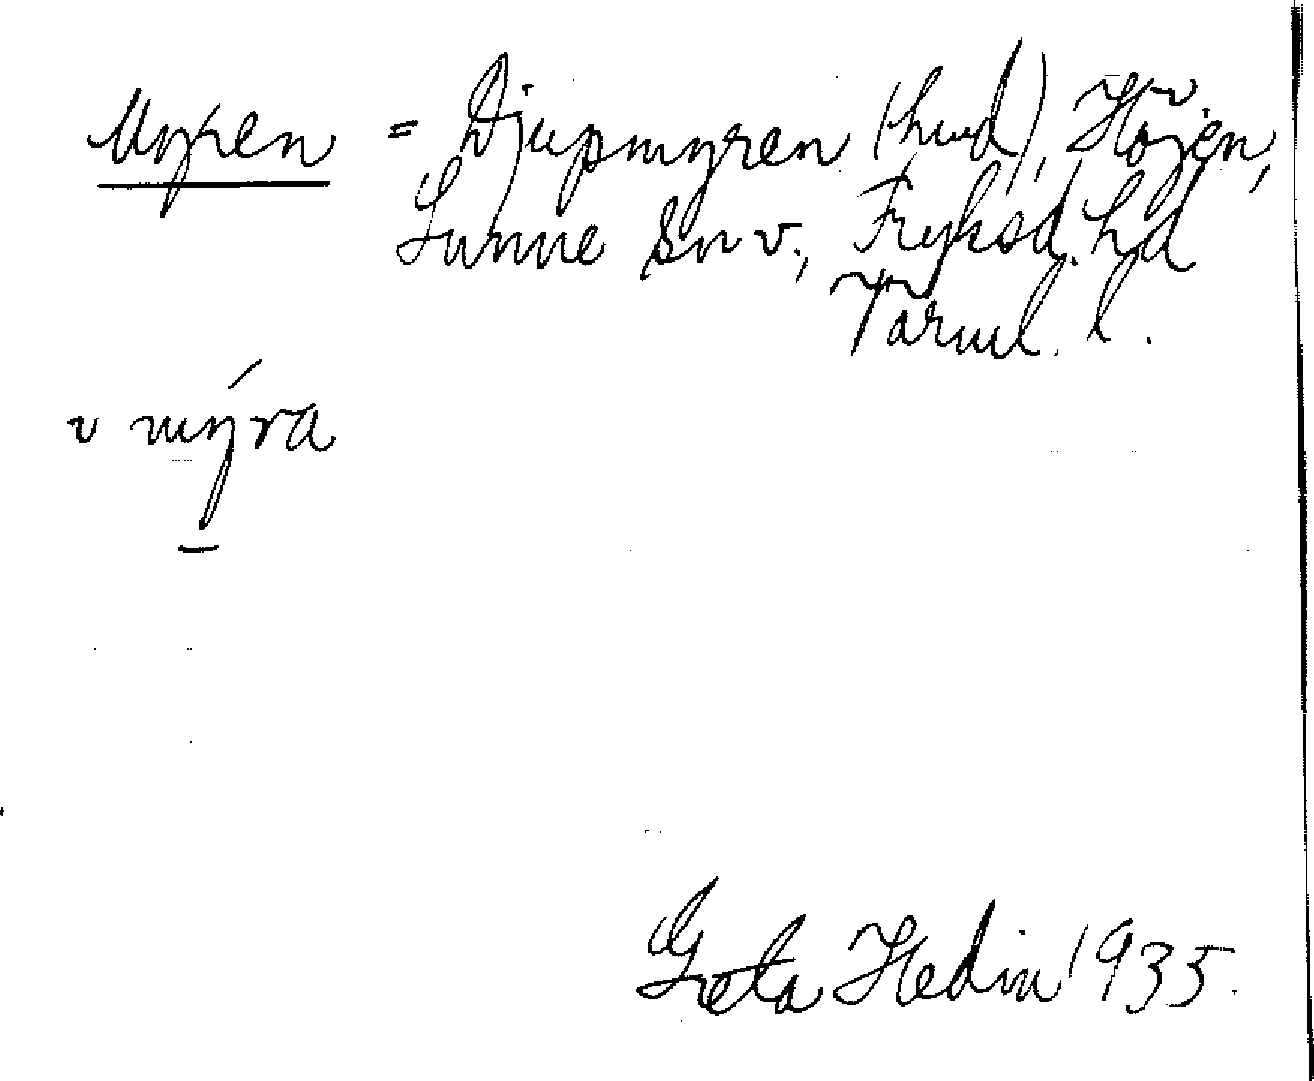 Myren = Djupmyren (hmd), Höjen,
Sunne sn v., Fryksd. hd
Värml. l.
v mýra
Greta Hedin 1935.